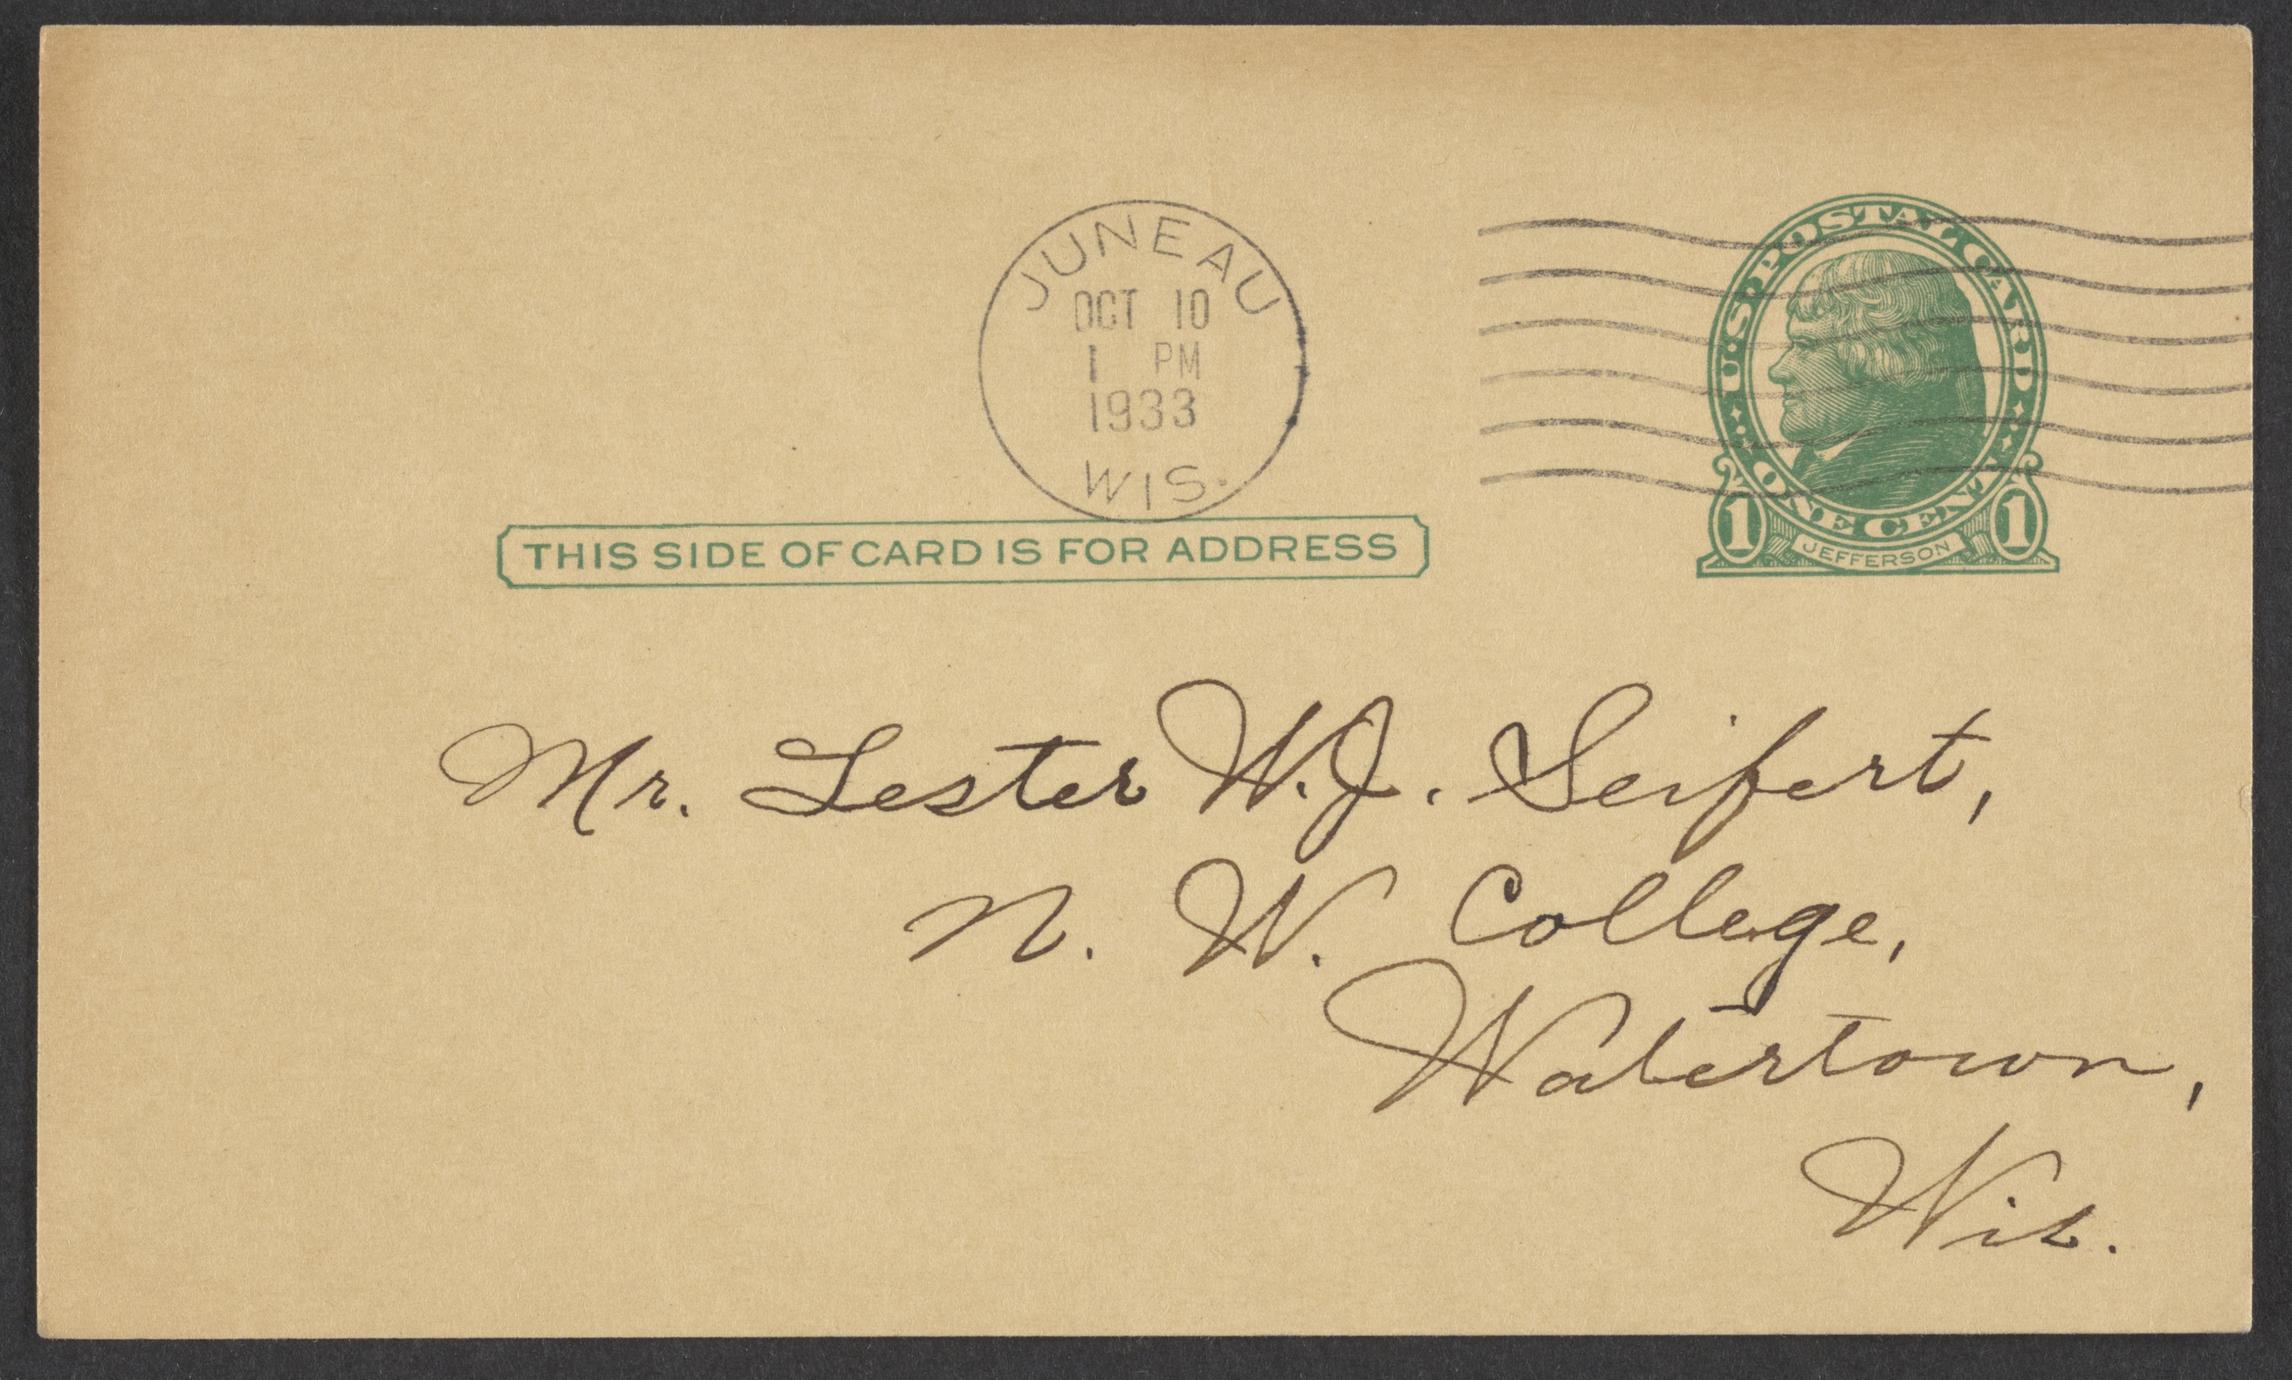 JUNEAU
OCT 10
1 PM
1933
WIS.
U·S·POSTAL CARD
ONE CENT
1 JEFFERSON 1
THIS SIDE OF CARD IS FOR ADDRESS
Mr. Lester W.J. Seifert,
N. W. College,
Watertown,
Wis.